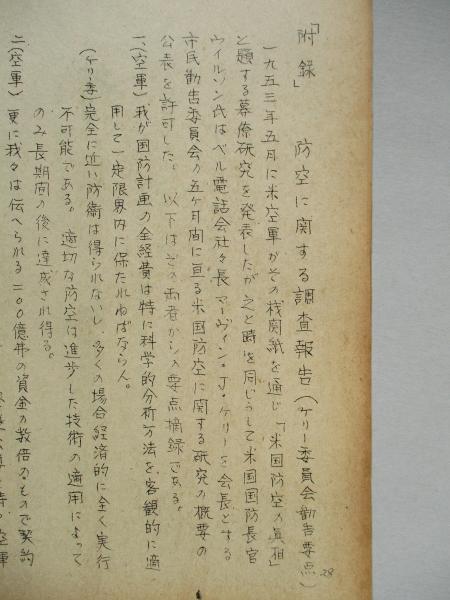 「附録」 防空に関する調査報告(ケリー委員会勧告要点)
一九五三年五月に米空軍がその機関紙を通じ「米国防空の真相」
と題する幕僚研究を発表したが之と時を同じうして米国国防長官
ウイルソン氏はベル電話会社々長マーヴィン・J・ケリーを会長とする
市民勧告委員会の五ヶ月間に亘る米国防空に関する研究の概要の
公表を許可した。以下はその両者からの要点摘録である。
一、(空軍)我が国防計画の全経費は特に科学的分析方法を客観的に適
用して一定限界内に保たれねばならん。
(ケリー委)完全に近い防衛は得られないし、多くの場合経済的に全く実行
不可能である。適切な防空は進歩した技術の適用によって
のみ長期間の後に達成され得る。
二(空軍) 更に我々は伝へられる二〇〇億弗の資金の数倍のもので契約
空軍
28